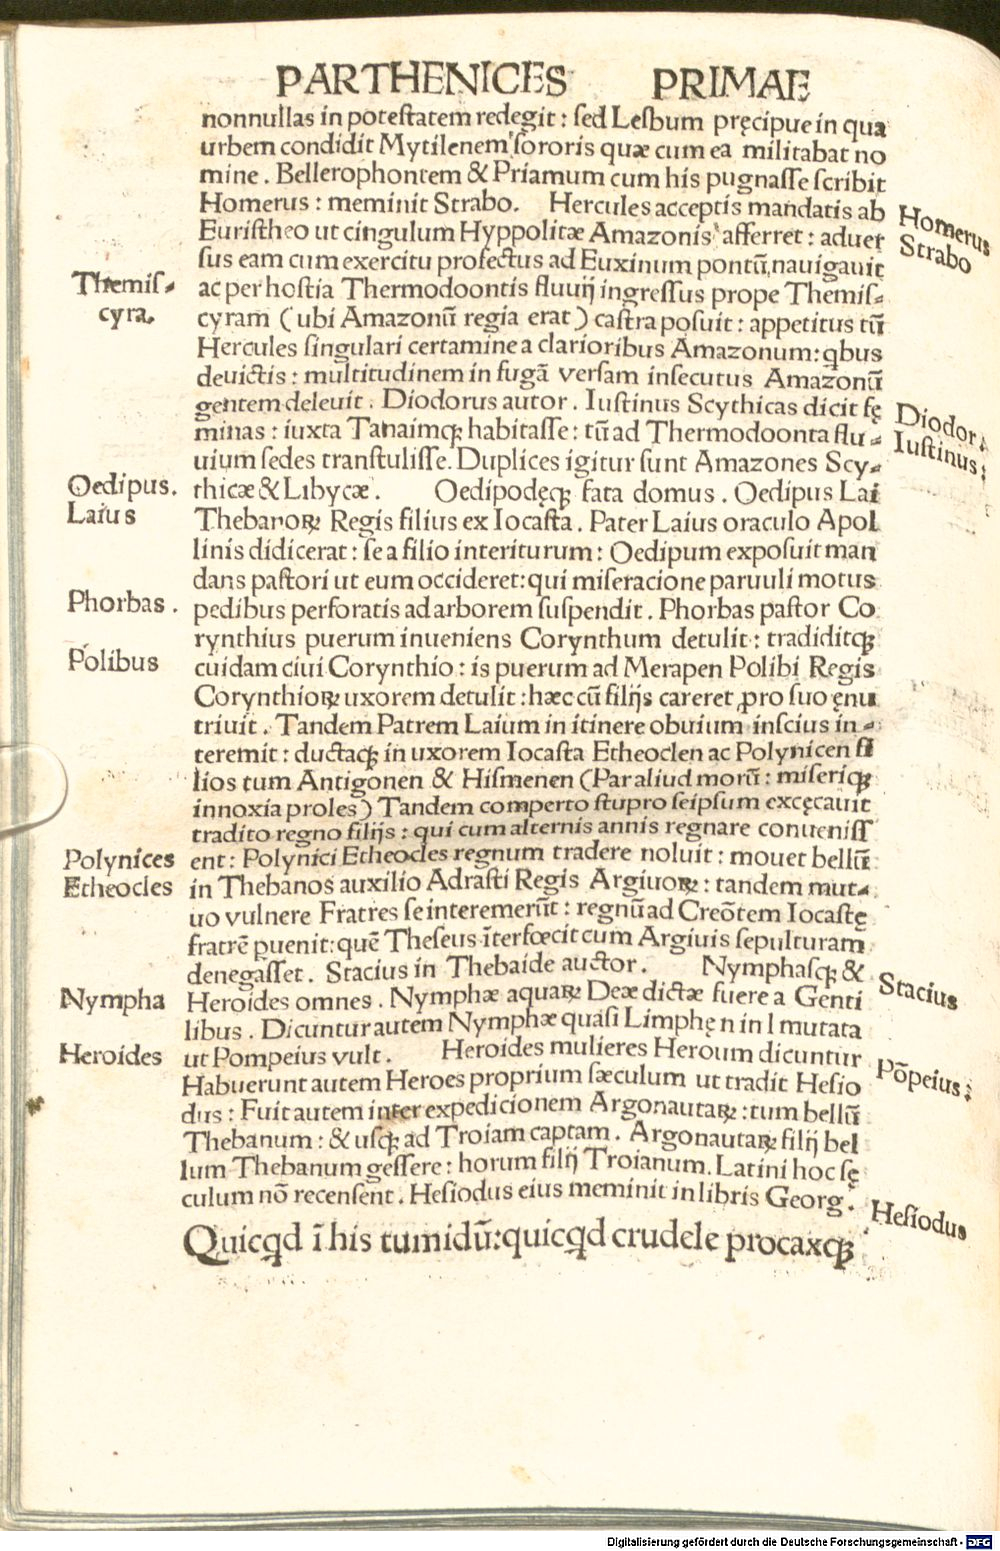 PARTHENICES PRIMAE
nonnullas in potestatem redegit : sed Lesbum pręcipue in qua
urbem condidit Mytilenem sororis quæ cum ea militabat no
mine . Bellerophontem & Priamum cum his pugnasse scribit
Homerus : meminit Strabo . Hercules acceptis mandatis ab
Homerus
Euristheo ut cingulum Hyppolitæ Amazonis afferret : aduer
Strabo
sus eam cum exercitu profectus ad Euxinum pontũ nauigauit
Themis-
ac per hostia Thermodoontis fluuij ingressus prope Themis-
cyra.
cyram ( ubi Amazonũ regia erat ) castra posuit : appetitus tũ
Hercules singulari certamine a clarioribus Amazonum : qbus
deuictis : multitudinem in fugã versam insecutus Amazonũ
gentem deleuit . Diodorus autor . Iustinus Scythicas dicit fę
Diodor;
minas : iuxta Tanaimqꝫ habitasse : tũ ad Thermodoonta flu-
Iustinus;
uium sedes transtulisse. Duplices igitur sunt Amazones Scy-
Oedipus.
thicæ & Libycæ . Oedipodęqꝫ fata domus . Oedipus Lai
Laius
Thebanoꝝ Regis filius ex Iocasta . Pater Laius oraculo Apol
linis didicerat : se a filio interiturum : Oedipum exposuit man
dans pastori ut eum occideret : qui miseracione paruuli motus
Phorbas .
pedibus perforatis ad arborem suspendit . Phorbas pastor Co
rynthius puerum inueniens Corynthum detulit : tradiditqꝫ
Polibus
cuidam ciui Corynthio : is puerum ad Merapen Polibi Regis
Corynthioꝝ uxorem detulit : hæc cũ filijs careret pro suo ęnu
triuit . Tandem Patrem Laium in itinere obuium inscius in-
teremit : ductaqꝫ in uxorem Iocasta Etheoclen ac Polynicen fi
lios tum Antigonen & Hismenen (Par aliud morũ : miseriqꝫ
innoxia proles) Tandem comperto stupro seipsum excęcauit
tradito regno filijs : qui cum alternis annis regnare conueniss
Polynices
ent : Polynici Etheocles regnum tradere noluit : mouet bellũ
Etheocles
in Thebanos auxilio Adrasti Regis Argiuoꝝ : tandem mut-
uo vulnere Fratres se interemerũt : regnũ ad Creõtem Iocastę
fratrẽ puenit : quẽ Theseus ĩterfœcit cum Argiuis sepulturam
denegasset . Stacius in Thebaide auctor . Nymphasqꝫ &
Stacius
Nympha
Heroides omnes . Nymphæ aquaꝝ Deæ dictæ fuere a Genti
libus . Dicuntur autem Nymphæ quasi Limphę n in l mutata
Heroides
ut Pompeius vult . Heroides mulieres Heroum dicuntur
Põpeius;
Habuerunt autem Heroes proprium sæculum ut tradit Hesio
dus : Fuit autem inter expedicionem Argonautaꝝ : tum bellũ
Thebanum : & usqꝫ ad Troiam captam . Argonautaꝝ filij bel
lum Thebanum gessere : horum filij Troianum . Latini hoc sę
culum nõ recensent . Hesiodus eius meminit in libris Georg .
Hesiodus
Quicqd ĩ his tumidũ : quicqd crudele procaxqꝫ
Digitalisierung gefördert durch die Deutsche Forschungsgemeinschaft - DFG